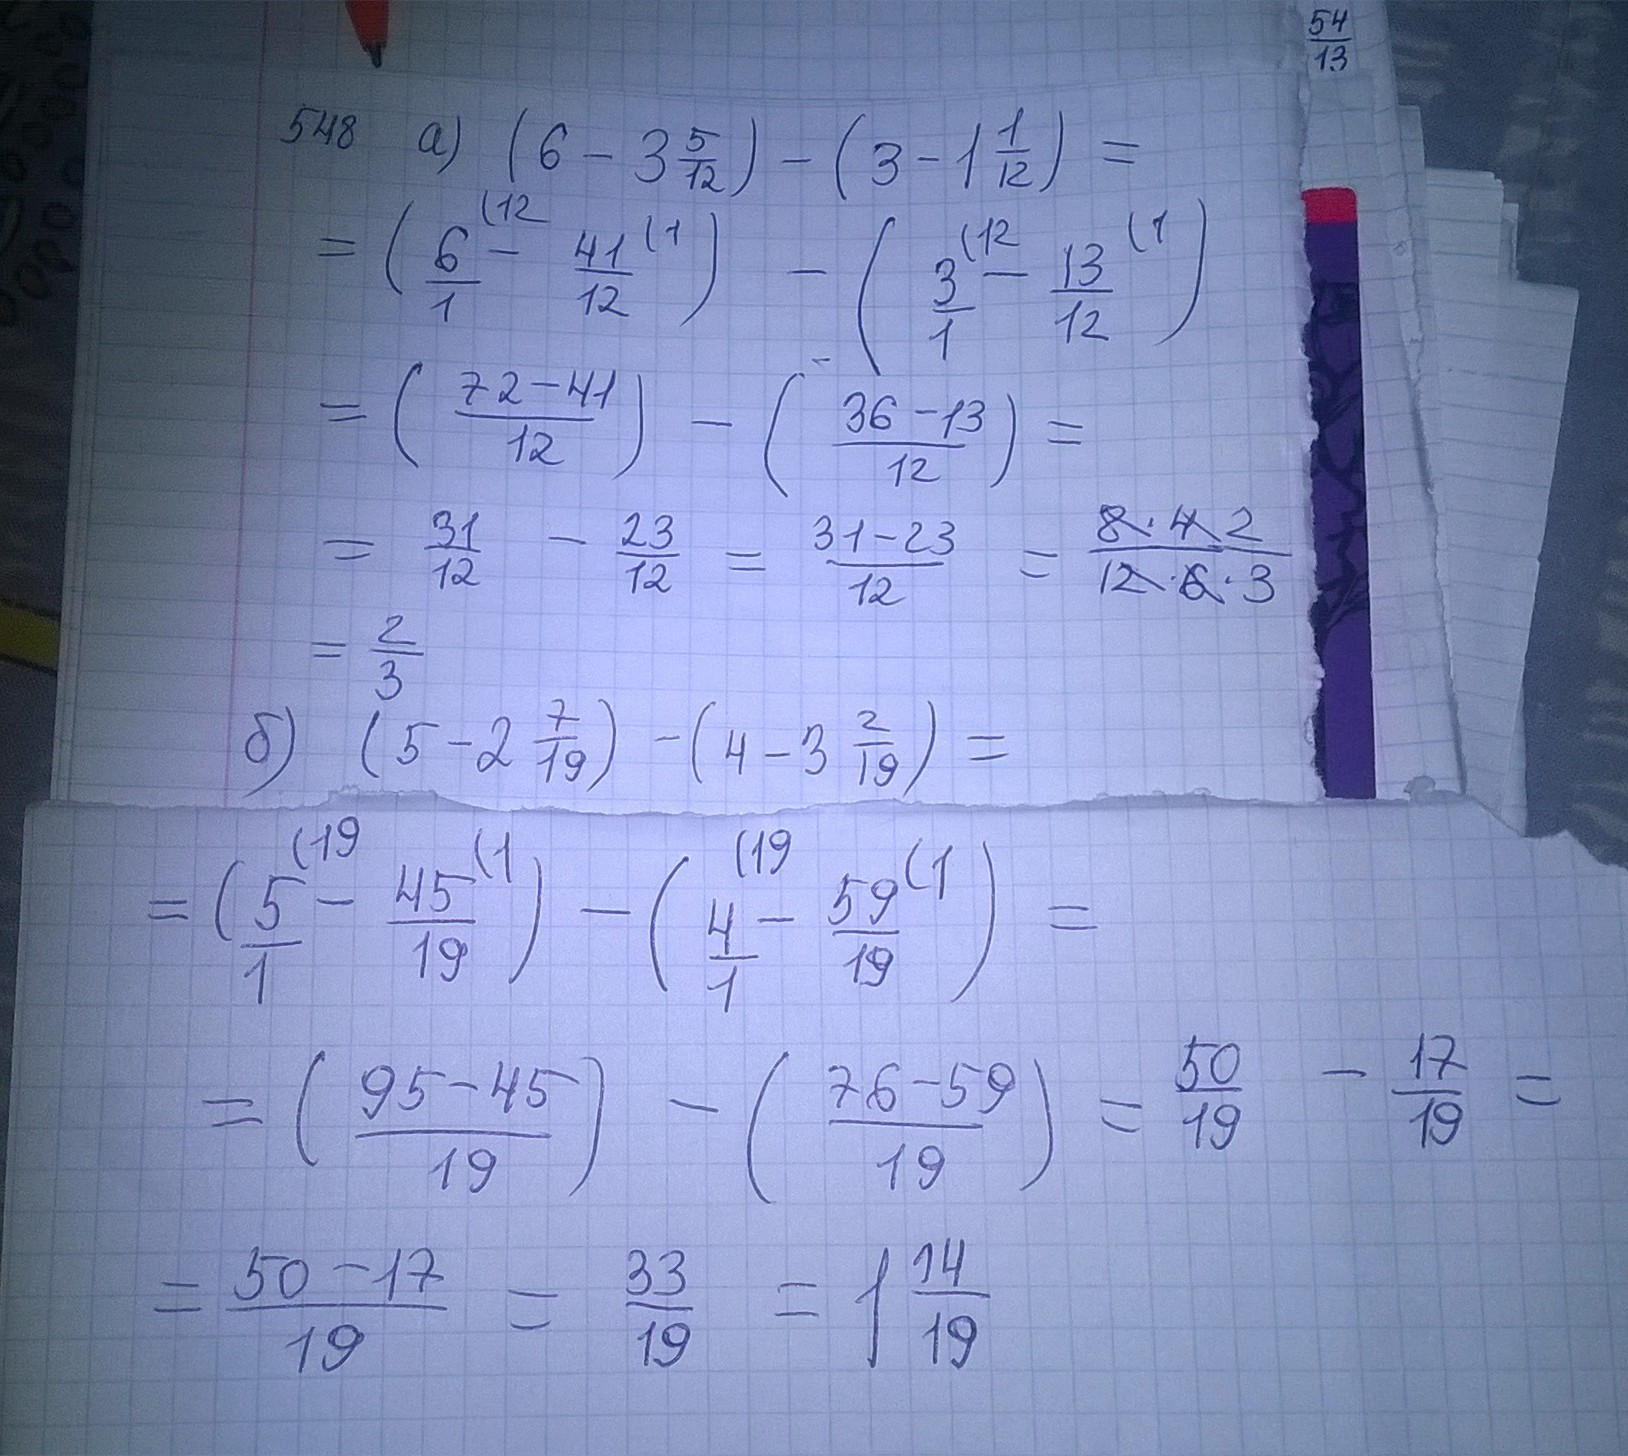 54/13
548 а) (6 - 3 5/12) - (3 - 1 1/12) =
= (6/1 (12 - 41/12 (1) - (3/1 (12 - 13/12 (1)
= (72-41/12) - (36-13/12) =
= 31/12 - 23/12 = 31-23/12 = 8·4·2/12·6·3
= 2/3
б) (5 - 2 7/19) - (4 - 3 2/19) =
= (5/1 (19 - 45/19 (1) - (4/1 (19 - 59/19 (1) =
= (95-45/19) - (76-59/19) = 50/19 - 17/19 =
= 50-17/19 = 33/19 = 1 14/19